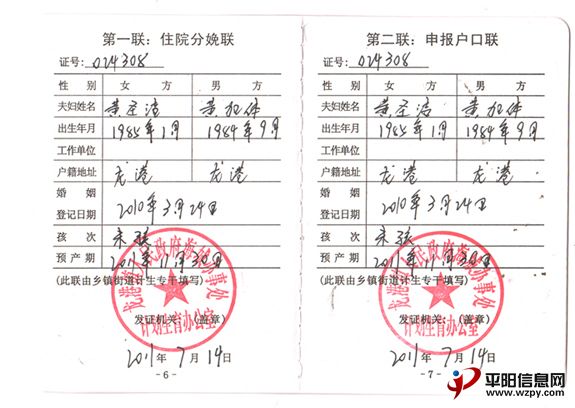 第一联：住院分娩联
证号：024308
性 别 女 方 男 方
夫妇姓名 黄
出生年月 1985年1月 1984年9月
工作单位
户籍地址 龙港 龙港
婚 姻
登记日期 2010年3月24日
孩 次 未孩
预 产 期 2011年11月30日
(此联由乡镇街道计生专干填写)
发证机关：(盖章)
计划生育办公室
2011年7月14日
-6-
第二联：申报户口联
证号：024308
性 别 女 方 男 方
夫妇姓名 黄
出生年月 1985年1月 1984年9月
工作单位
户籍地址 龙港 龙港
婚 姻
登记日期 2010年3月24日
孩 次 未孩
预 产 期 2011年11月30日
(此联由乡镇街道计生专干填写)
发证机关：(盖章)
计划生育办公室
2011年7月14日
-7-
平阳信息网
www.wzpy.com